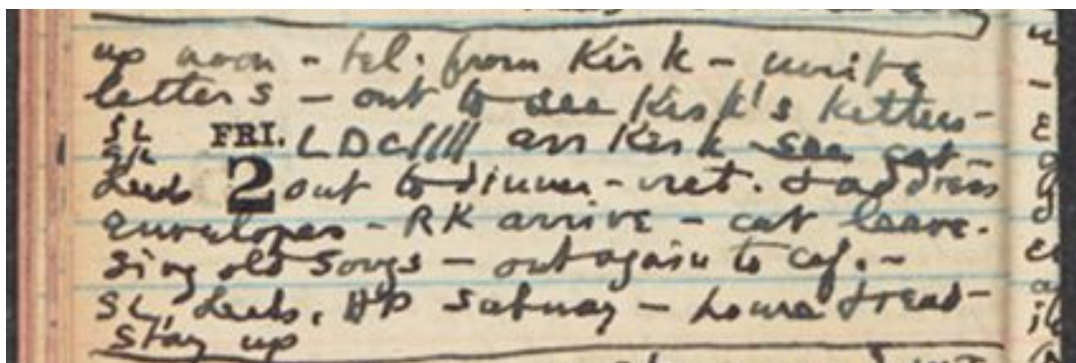 up noon - tel. from Kirk - write
letters - out to see Kirk's kittens -
SL FRI. LDC//// arr Kirk see cat -
Leeds 2 out to dinner - ret. & address
envelopes - RK arrive - cat leave.
Sing old songs - out again to caf. -
SL, Leeds, HP subway - home & read -
Stay up